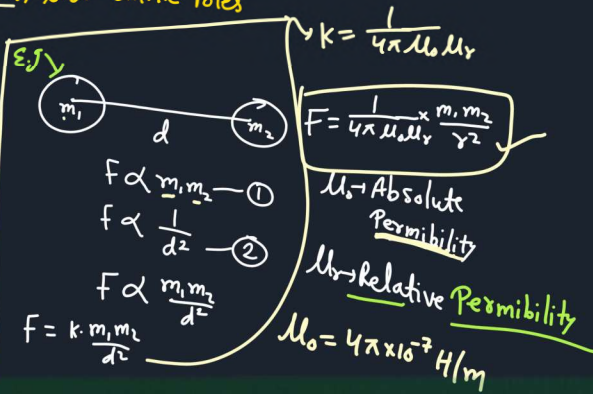 Poles
E.g
m₁
m₂
d
F ∝ m₁m₂ — ①
F ∝ 1/d² — ②
F ∝ m₁m₂/d²
F = k· m₁m₂/d²
K = 1/4πμ₀μr
F = 1/4πμ₀μr × m₁m₂/r²
μ₀→Absolute
Permibility
μr→Relative Permibility
μ₀ = 4π×10⁻⁷ H/m